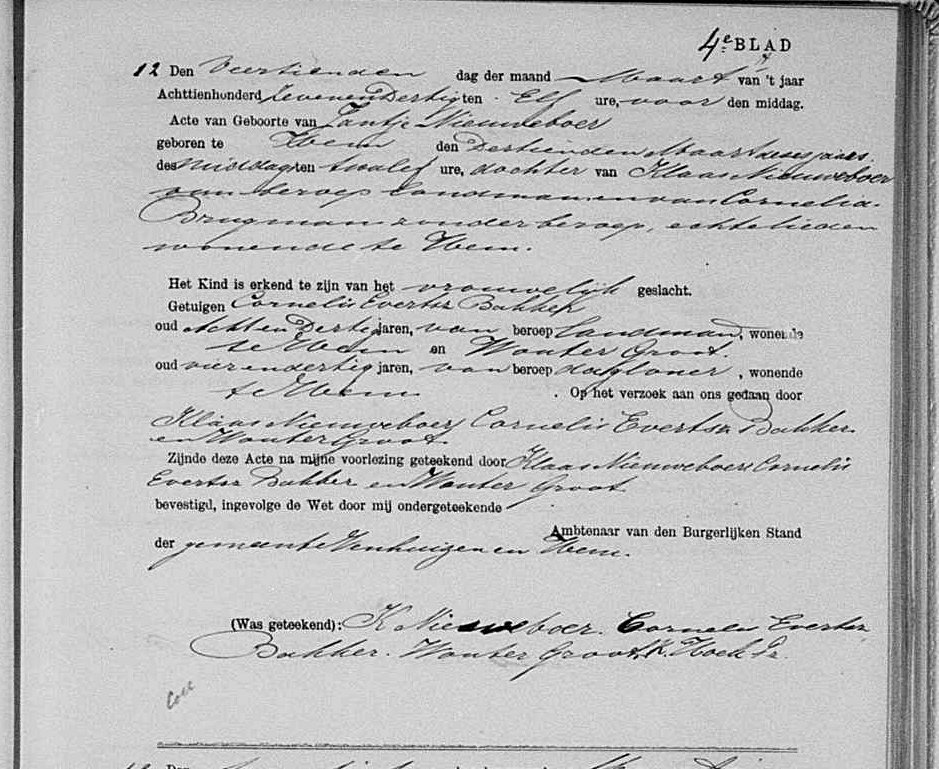 4e BLAD
12 Den Veertienden dag der maand Maart van 't jaar
Achttienhonderd Zeven en Dertig ten Elf ure, voor den middag.
Acte van Geboorte van Jantje Nieuweboer
geboren te Hem den Dertienden Maart dezes jaars
des Middags ten twalef ure, dochter van Klaas Nieuweboer
van beroep Landman en van Cornelia
Brugman zonder beroep, echtelieden
wonende te Hem.
Het Kind is erkend te zijn van het vrouwelijk geslacht.
Getuigen Cornelis Evertsz Bakker
oud Acht en Dertig jaren, van beroep Landman, wonende
te Hem en Wouter Groot.
oud vier en dertig jaren, van beroep dagloner, wonende
te Hem. Op het verzoek aan ons gedaan door
Klaas Nieuweboer, Cornelis Evertsz Bakker
en Wouter Groot.
Zijnde deze Acte na mijne voorlezing geteekend door Klaas Nieuweboer, Cornelis
Evertsz Bakker en Wouter Groot
bevestigd, ingevolge de Wet door mij ondergeteekende
Ambtenaar van den Burgerlijken Stand
der gemeente Venhuizen en Hem.
(Was geteekend): K Nieuweboer. Cornelis Evertsz
Bakker. Wouter Groot, K.
Coll